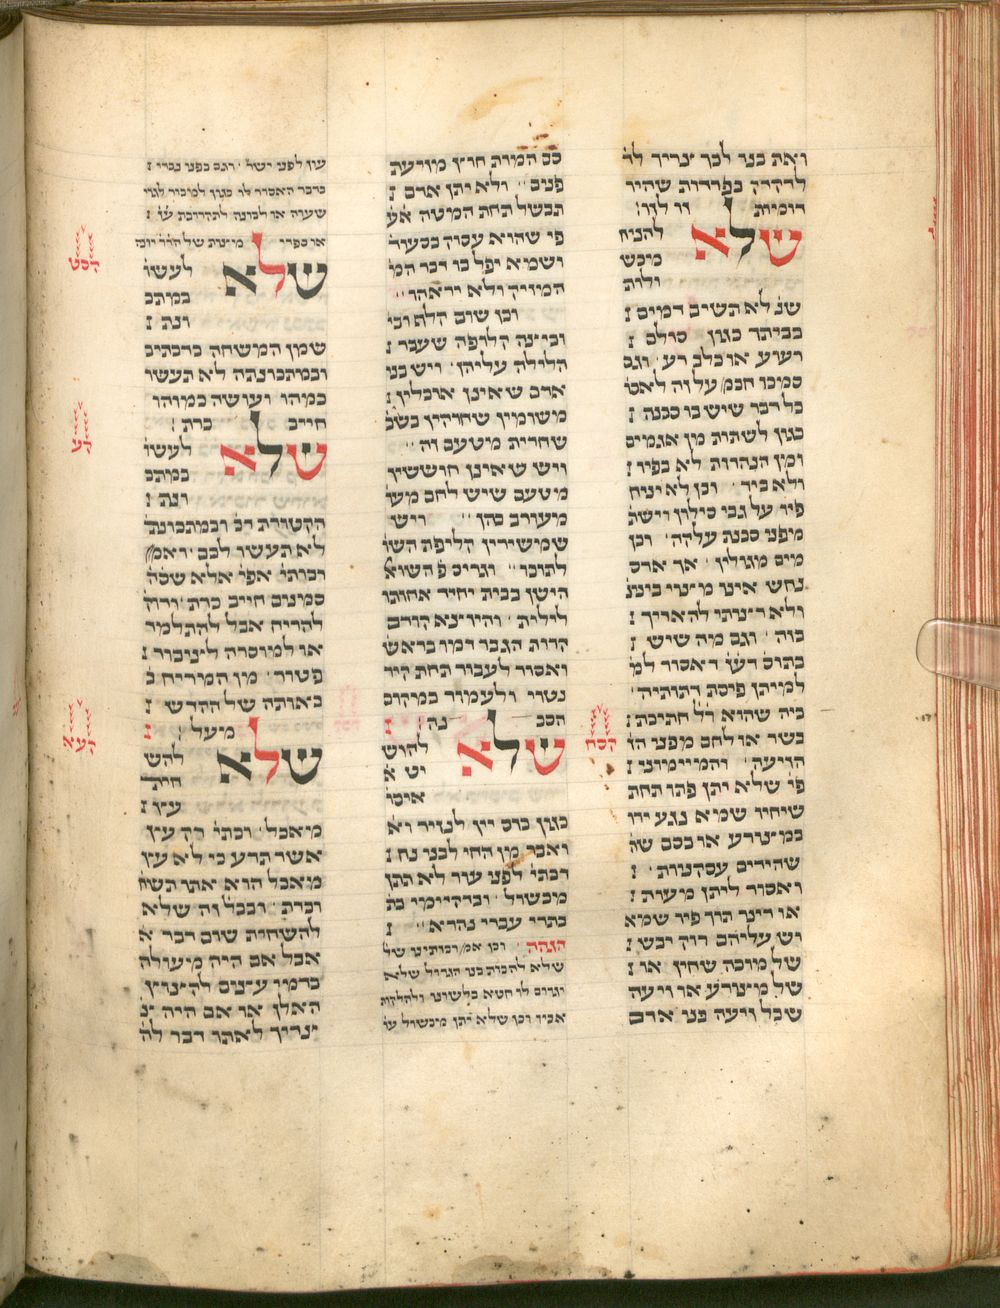 ואת בנו לכך צריך לד
לדקדק בפרדות שהיו
רומיות זו לזו׃
שלא להניח
מיכש
ולות
שנ׳ לא תשיב דמים ז
בביתך כגון סולם ז
רעוע או כלב רע׳ וגם
סמכו חכמ׳ על זה לאס׳
כל דבר שיש בו סכנה ז
כגון לשתות מן אגמים
ומן הנהרות לא בפיו ז
ולא ביד׳ וכן לא יניח
פיו על גבי סילון וישת׳
מיפני סכנת עלקה׳ וכן
מים מגולין׳ אך ארס
נחש אינו מצוי בינת׳
ולא רציתי להאריך ז
בזה׳ וגם מיה שיש ז
בתוס׳ דע״ז דאסור למ׳
למיתן פיסת דתותיה׳
ביה שהוא ר״ל חתיכת ז
בשר או לחם מפני הז׳
הזיעה׳ והמיימוני ז
פי׳ שלא יתן פתו תחת
שיחיו שמא נגע ידו
במצורע או בסם שה׳
שהידים עסקניות׳ ז
ואסור ליתן מעות ז
או דינר תוך פיו שמא
יש עליהם רוק יבש ז
של מוכה שחין או ז
של מצורע או זיעה
שכל זיעה בני אדם
סם המות חוץ מזיעת
פנים׳׳ ולא יתן אדם ז
תבשל תחת המיטה אע׳
פי שהוא עסוק בסעוד׳
ושמא יפל בו דבר המ׳
המזיק ולא יראהו׳׳
וכן שום קלוף וב׳
וביצה קלופה שעבר ז
הלילה עליהן׳ ויש בני
אדם שאינן אוכלין ז
משומין שחותיך בשב׳
שחרית מיטעם זה׳׳
ויש שאינן חוששין
מטעם שיש לחם מער׳
מעורב בהן׳׳ ויש
שמשירין קליפת השו׳
לתוכו׳׳ וגריס פ׳ השוא׳
הישן בבית יחיד אחזתו
לילית׳ והיוצא קודם
קרות הגבר דמו בראש׳
ואסור לעבור תחת קיר
נטוי ולעמוד במקום
הסכ נה׃ ז
שלא להוש
יט א
איסו׳
כגון כוס יין לנזיר וא׳
ואבר מן החי לבני נח ז
דכתי׳ לפני עור לא תתן
מכשול׳ ובדקיימי בת׳
בתרי עברי נהרא׳׳ ז
הגהה׳ וכן אמ׳ רבותינו של׳
שלא להכות בנו הגדול שלא
יגרום לו חטא בלשונו ולהלקות
אביו וכן שלא יתן מיכשול עו׳
עון לפני ישר׳ וגם בפני נכרי ז
בדבר האסור לו כגון למכור לגוי
שעוה או לבונה לתקרובת ע״ז ז
או ספרי מצות של הדר יומא
שלא לעשו׳
במתכ
ונת ז
שמן המשחה כדכתיב
ובמתכונתה לא תעשו
כמהו ועושה כמוהו
חייב כרת׃
שלא לעשו׳
במתכ
ונת ז
הקטורת דכ׳ ובמתכונת׳
לא תעשו לכם׳ ואמ׳
רבותי׳ אפי׳ אלא שסה׳
סמנים חייב כרת׳ ודוק׳
להריח אבל להתלמד
או למוסרה לציבור ז
פטור׳ מן המריח ב׳
באותה של הקדש ז
מעל׃ ז
שלא להש
חית
עץ ז
מאכל׳ וכתי׳ רק עץ
אשר תדע כי לא עץ
מאכל הוא אתו תשח׳
וכרת׳ ובכל זה שלא
להשחית שום דבר א׳
אבל אם היה מיעולה
בדמיו עצים לקצוץ
האלן או אם היה צ׳
צריך לאתו דבר לק׳
קסח
קסט
קע
קעא